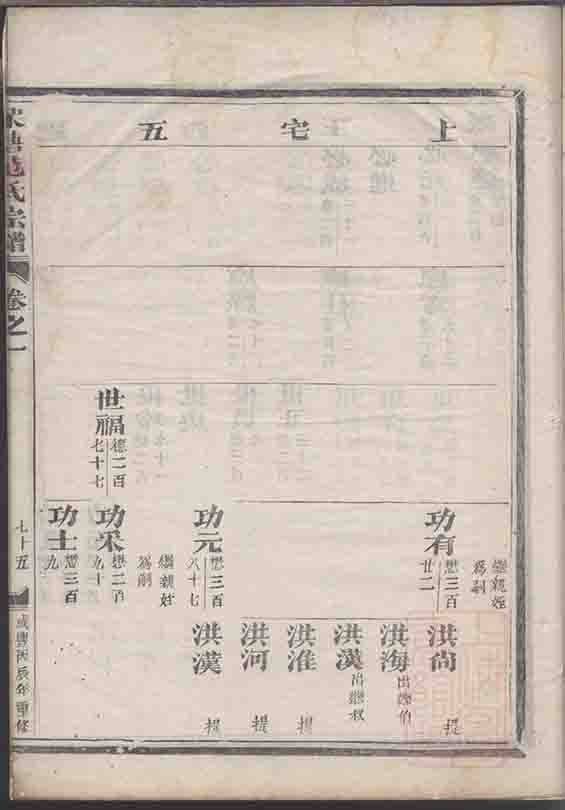 上宅五
世福
德二百
七十七
功有
懋三百
廿二
繼親姪
爲嗣
功元
懋三百
八十七
繼親姪
爲嗣
功采
懋二百
九十
功士
懋三百
九
洪尚
提
洪海
出繼伯
洪漢
出繼叔
洪淮
提
洪河
提
洪漢
提
氏宗譜
卷之一
七十五
咸豐丙辰年重修